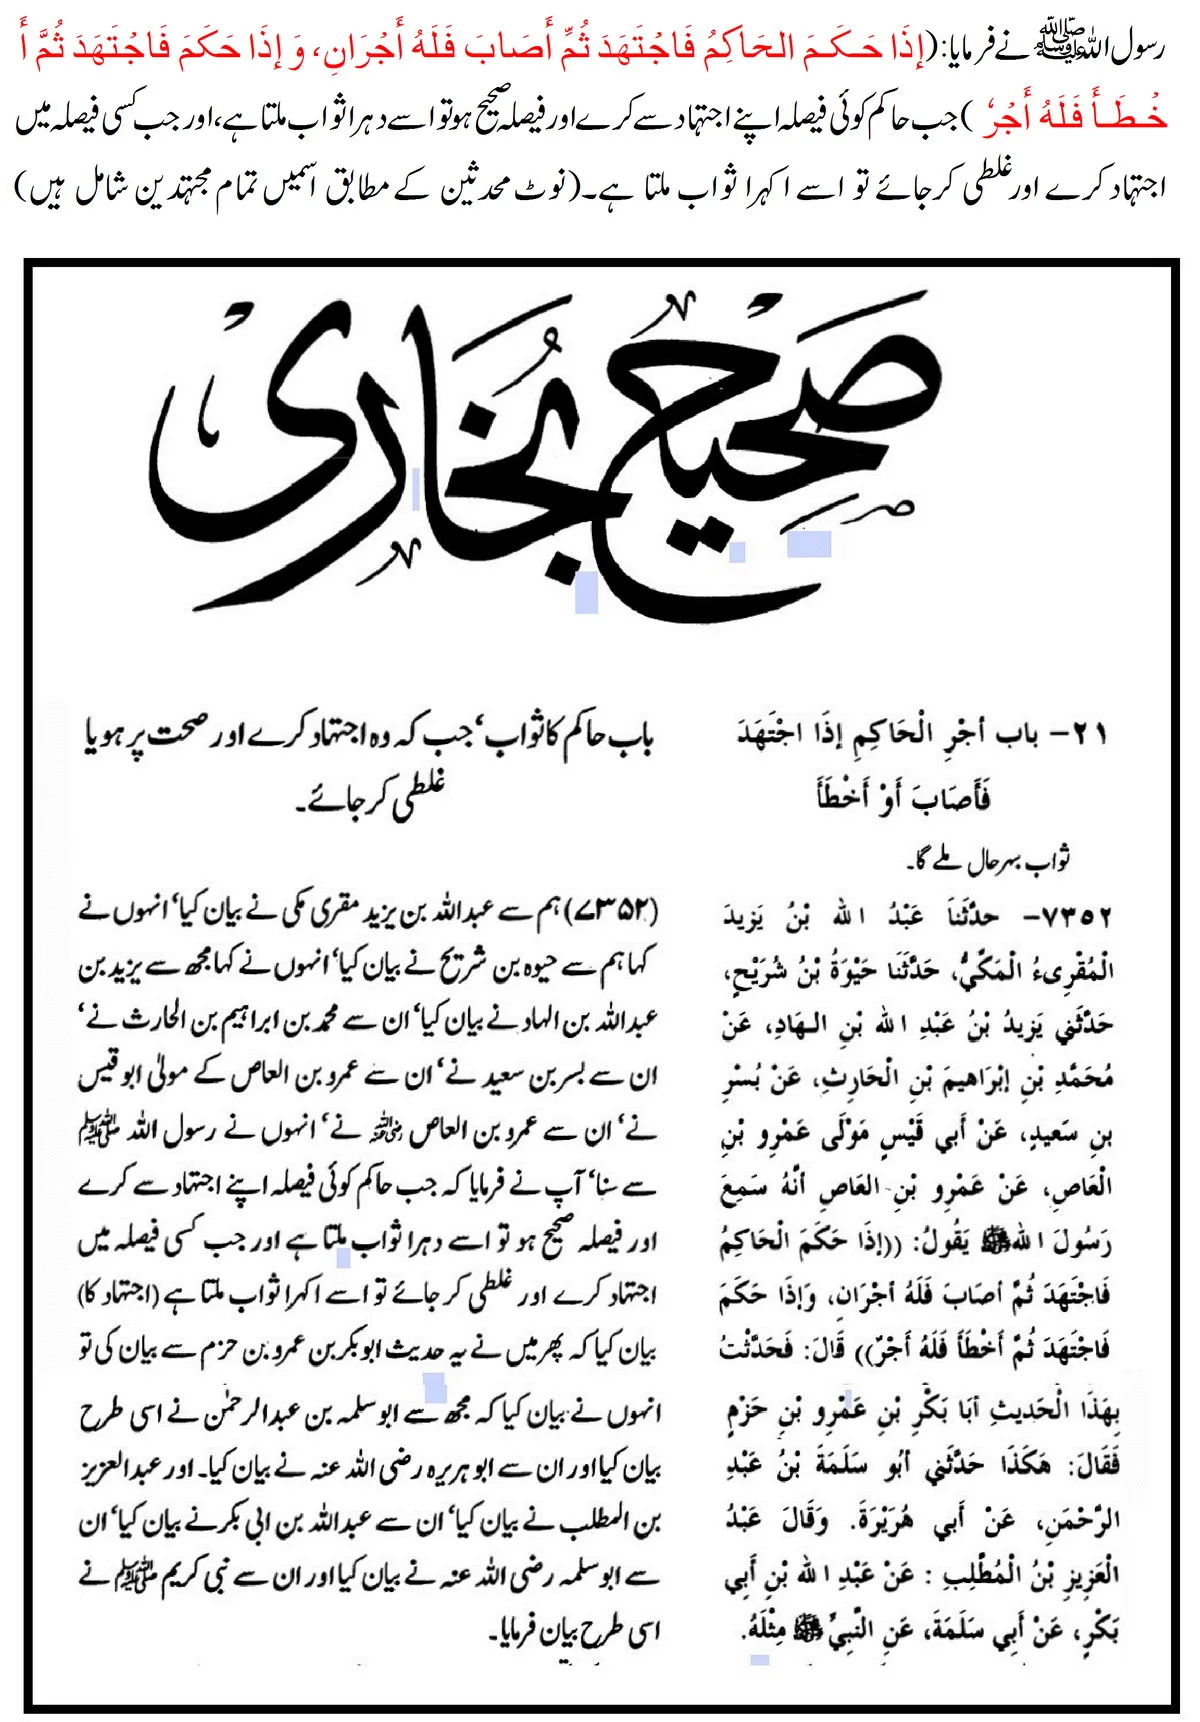 رسول اللہ ﷺ نے فرمایا:(إذَا حَكَمَ الحَاكِمُ فَاجْتَهَدَ ثُمَّ أَصَابَ فَلَهُ أَجْرَانِ، وَ إِذَا حَكَمَ فَاجْتَهَدَ ثُمَّ أَ
خْطَأَ فَلَهُ أَجْرٌ )جب حاکم کوئی فیصلہ اپنے اجتہاد سے کرے اور فیصلہ صحیح ہو تو اسے دہرا ثواب ملتا ہے،اور جب کسی فیصلہ میں
اجتہاد کرے اور غلطی کر جائے تو اسے اکہرا ثواب ملتا ہے۔(نوٹ محدثین کے مطابق اسمیں تمام مجتہدین شامل ہیں)
صَحِيح بُخَارى
٢١- باب أَجْرِ الْحَاكِمِ إِذَا اجْتَهَدَ
فَأَصَابَ أَوْ أَخْطَأَ
ثواب بہر حال ملے گا۔
٧٣٥٢- حدَّثَنَا عَبْدُ الله بْنُ يَزِيدَ
الْمُقْرِىءُ الْمَكِّيُّ، حَدَّثَنَا حَيْوَةُ بْنُ شُرَيْحٍ،
حَدَّثَنِي يَزِيدُ بْنُ عَبْدِ الله بْنِ الْهَادِ، عَنْ
مُحَمَّدِ بْنِ إِبْرَاهِيمَ بْنِ الْحَارِثِ، عَنْ بُسْرِ
بنِ سَعِيدٍ، عَنْ أَبِي قَيْسٍ مَوْلَى عَمْرِو بْنِ
الْعَاصِ، عَنْ عَمْرِو بْنِ الْعَاصِ أَنَّهُ سَمِعَ
رَسُولَ اللهﷺ يَقُولُ: ((إِذَا حَكَمَ الْحَاكِمُ
فَاجْتَهَدَ ثُمَّ أَصَابَ فَلَهُ أَجْرَانِ، وَإِذَا حَكَمَ
فَاجْتَهَدَ ثُمَّ أَخْطَأَ فَلَهُ أَجْرٌ)) قَالَ: فَحَدَّثْتُ
بِهَذَا الْحَدِيثِ أَبَا بَكْرِ بْنِ عَمْرِو بْنِ حَزْمٍ
فَقَالَ: هَكَذَا حَدَّثَنِي أَبُو سَلَمَةَ بْنُ عَبْدِ
الرَّحْمَنِ، عَنْ أَبِي هُرَيْرَةَ. وَقَالَ عَبْدُ
الْعَزِيزِ بْنُ الْمُطَّلِبِ : عَنْ عَبْدِ الله بْنِ أَبِي
بَكْرٍ، عَنْ أَبِي سَلَمَةَ، عَنِ النَّبِيِّ ﷺ مِثْلَهُ.
باب حاکم کا ثواب‘ جب کہ وہ اجتہاد کرے اور صحت پر ہو یا
غلطی کر جائے۔
(۷۳۵۲) ہم سے عبداللہ بن یزید مقری مکی نے بیان کیا‘ انہوں نے
کہا ہم سے حیوہ بن شریح نے بیان کیا‘ انہوں نے کہا مجھ سے یزید بن
عبداللہ بن الہاد نے بیان کیا‘ ان سے محمد بن ابراہیم بن الحارث نے‘
ان سے بسر بن سعید نے‘ ان سے عمرو بن العاص کے مولیٰ ابو قیس
نے‘ ان سے عمرو بن العاص رضی اللہ عنہ نے‘ انہوں نے رسول اللہ ﷺ
سے سنا‘ آپ نے فرمایا کہ جب حاکم کوئی فیصلہ اپنے اجتہاد سے کرے
اور فیصلہ صحیح ہو تو اسے دہرا ثواب ملتا ہے اور جب کسی فیصلہ میں
اجتہاد کرے اور غلطی کر جائے تو اسے اکہرا ثواب ملتا ہے (اجتہاد کا)
بیان کیا کہ پھر میں نے یہ حدیث ابو بکر بن عمرو بن حزم سے بیان کی تو
انہوں نے بیان کیا کہ مجھ سے ابو سلمہ بن عبدالرحمٰن نے اسی طرح
بیان کیا اور ان سے ابو ہریرہ رضی اللہ عنہ نے بیان کیا۔ اور عبدالعزیز
بن المطلب نے بیان کیا‘ ان سے عبداللہ بن ابی بکر نے بیان کیا‘ ان
سے ابو سلمہ رضی اللہ عنہ نے بیان کیا اور ان سے نبی کریم ﷺ نے
اسی طرح بیان فرمایا۔